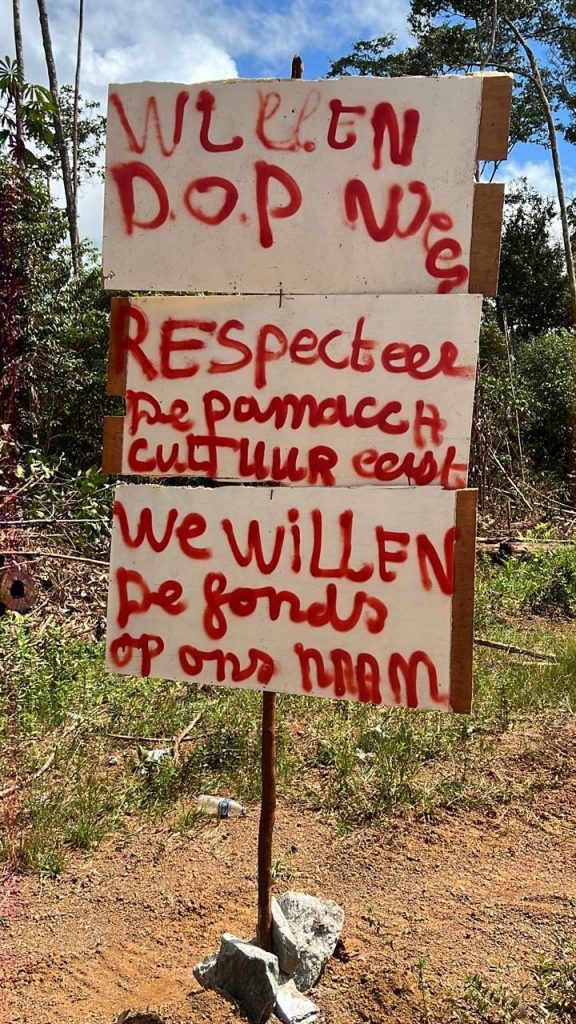 WILLEN
D.O.P
RESpecteer
De pamaccA
CULTUUR eerst
We WiLLEN
De fonds
op ons NAAM